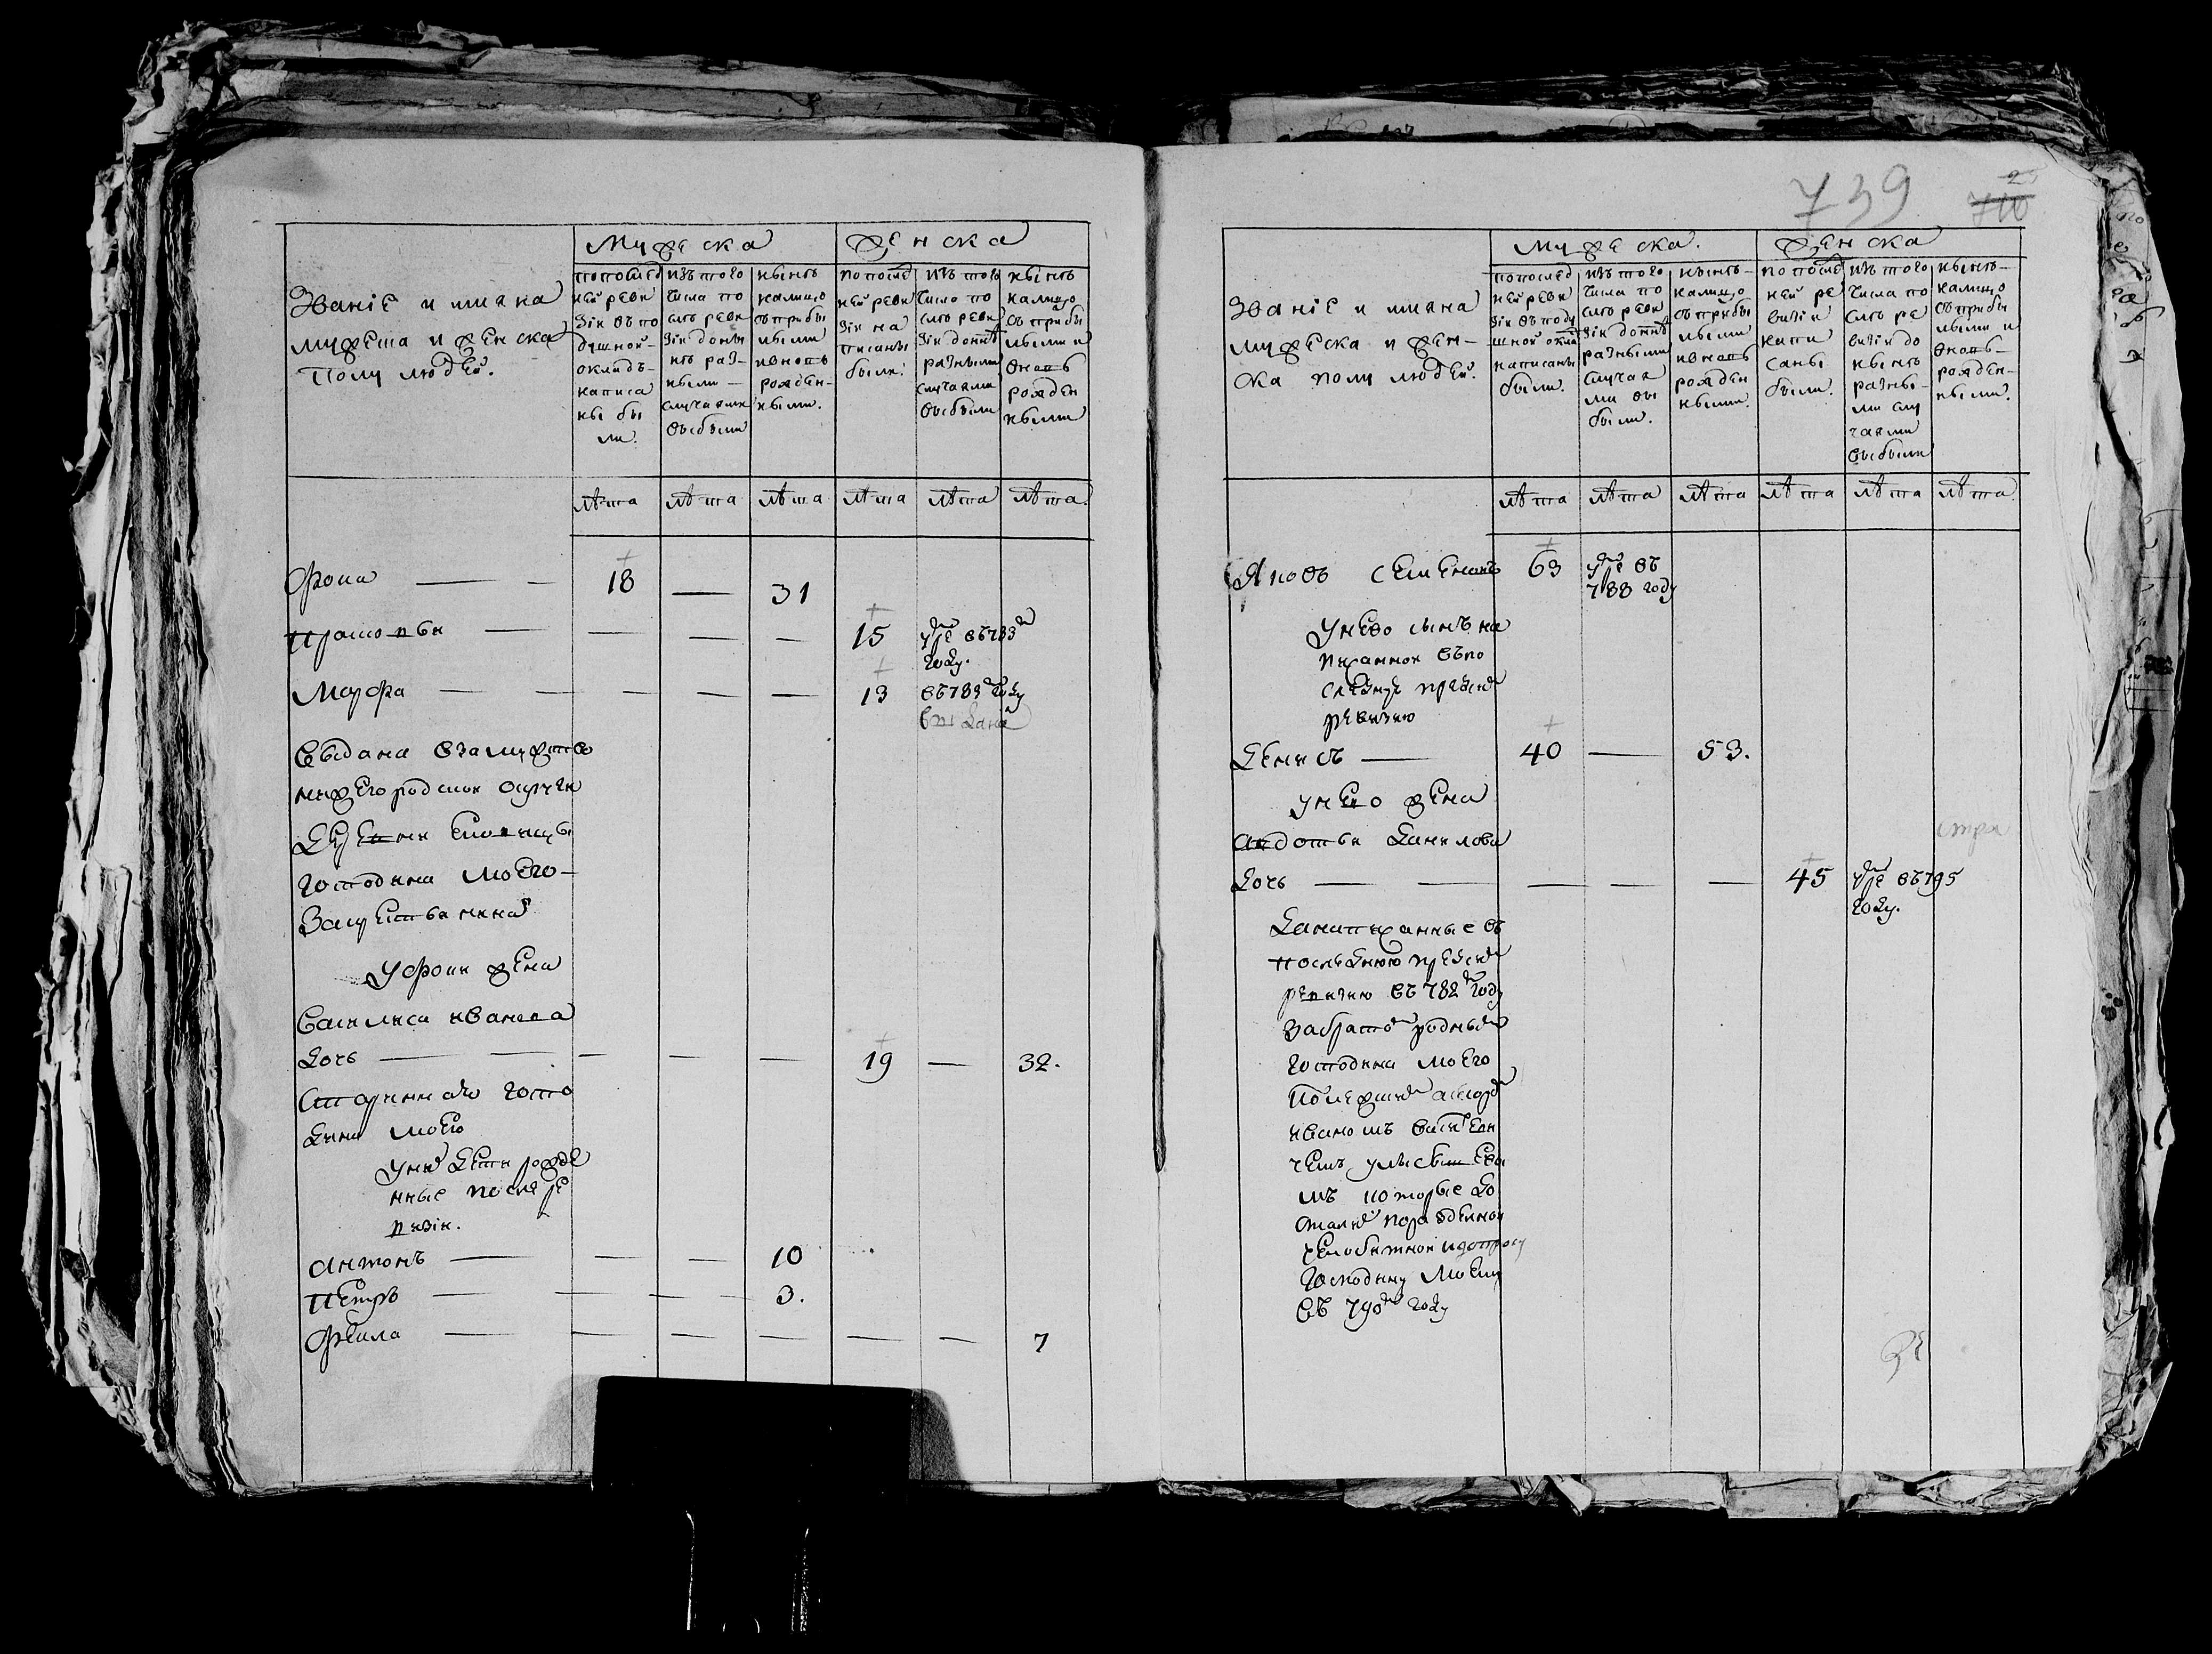 Званіе и имяна
мужеска и женска
полу людей.
Мужеска
Женска
по послед
ней реви
зіи въ по
душной
окладъ
написа
ны бы
ли.
изъ того
числа по
слѣ реви
зіи до ны
нѣ раз-
ными
случаями
выбыли
нынѣ
налицо
съ прибы
лыми
и вновь
рожден-
ными.
по послед
ней реви
зіи на
писаны
были.
изъ того
числа по
слѣ реви
зіи до нынѣ
разными
случаями
выбыли
нынѣ
налицо
съ прибы
лыми и
вновь
рожден
ными
лѣта лѣта лѣта лѣта лѣта лѣта.
Фома — — 18 — 31
Прасковья — — — — 15 уме въ 783м
году.
Марфа — — — — — 13 въ 783м году
выдана
выдана в замужство
нижегородской округи
деревни
господина моего
за крестьянина
у Фомы жена
Василиса Иванова
дочь — — — — — 19 — 32.
старинная госпо
дина моего
у них дети рожде
нные после ре
визіи.
Антонъ — — — 10
Петръ — — — 3.
Фекла — — — — — — 7
739
Званіе и имяна
мужеска и жен-
ска полу людей.
Мужеска.
Женска
по послед
ней реви
зіи въ поду
шной окла
написаны
были.
изъ того
числа по
слѣ реви
зіи до нынѣ
разными
случая
ми вы
были.
нынѣ
налицо
съ прибы
лыми
и вновь
рожден
ными.
по послед
ней ре
визіи
напи
саны
были.
изъ того
числа по
слѣ ре
визіи до
нынѣ
разны-
ми слу
чаями
выбыли
нынѣ
налицо
съ прибы
лыми и
вновь
рожден-
ными.
лѣта лѣта лѣта лѣта лѣта лѣта.
Яковъ Семеновъ 63 уме въ
788 году
у него сынъ на
писанной въ по
следнюю пред сим
ревизию
Денисъ — 40 — 53.
у него жена
Авдотья Данилова
дочь — — — — — 45 уме въ 795
году.
написанные въ
последнюю пред сим
ревизию въ 782м году
за братом родным
господина моего
Иваномъ Василеви
чемъ
которые до
стались по раздельной
господину моему
въ 790м году